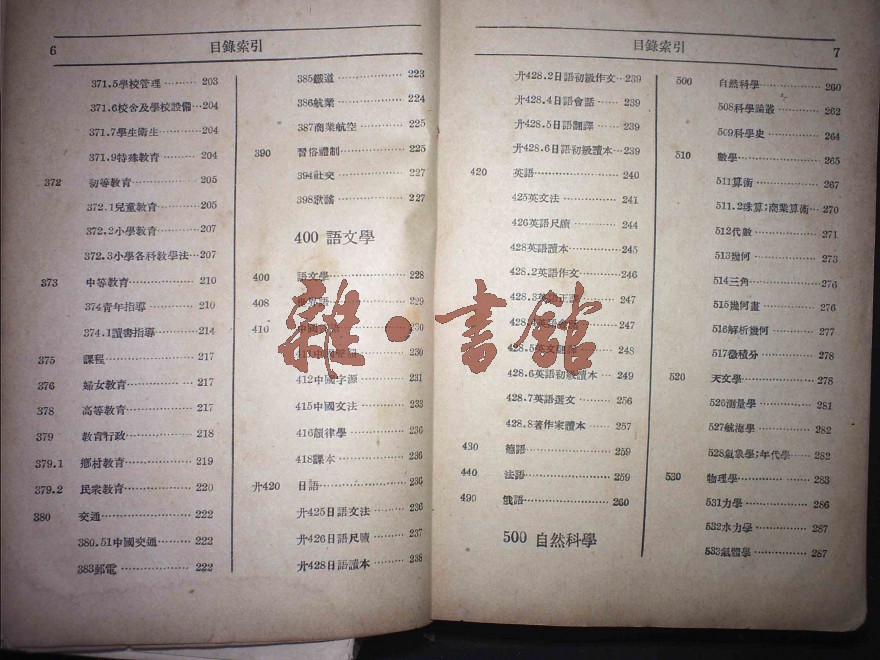 6
目錄索引
371.5學校管理 ·········· 203
371.6校舍及學校設備 ·· 204
371.7學生衛生 ·········· 204
371.9特殊教育 ·········· 204
372 初等教育 ·········· 205
372.1兒童教育 ·········· 205
372.2小學教育 ·········· 207
372.3小學各科教學法 ··· 207
373 中等教育 ·········· 210
374青年指導 ·········· 210
374.1讀書指導 ·········· 214
375 課程 ·········· 217
376 婦女教育 ·········· 217
378 高等教育 ·········· 217
379 教育行政 ·········· 218
379.1 鄉村教育 ·········· 219
379.2 民衆教育 ·········· 220
380 交通 ·········· 222
380.51中國交通 ·········· 222
383郵電 ·········· 222
385鐵道 ·········· 223
386航業 ·········· 224
387商業航空 ·········· 225
390 習俗禮制 ·········· 225
394社交 ·········· 227
398歌謠 ·········· 227
400 語文學
400 語文學 ·········· 228
408 ·········· 229
410 中國 ·········· 230
·········· 230
412中國字源 ·········· 231
415中國文法 ·········· 233
416韻律學 ·········· 236
418課本 ·········· 236
廾420 日語 ·········· 236
廾425日語文法 ·········· 236
廾426日語尺牘 ·········· 237
廾428日語讀本 ·········· 238
目錄索引
7
廾428.2日語初級作文 ·· 239
廾428.4日語會話 ·········· 239
廾428.5日語翻譯 ·········· 239
廾428.6日語初級讀本 ··· 239
420 英語 ·········· 240
425英文法 ·········· 241
426英語尺牘 ·········· 244
428英語讀本 ·········· 245
428.2英語作文 ·········· 246
428.3英語 ·········· 247
·········· 247
428.5英文 ·········· 248
428.6英語初級讀本 ··· 249
428.7英語選文 ·········· 256
428.8著作家讀本 ····· 257
430 德語 ·········· 259
440 法語 ·········· 259
490 俄語 ·········· 260
500 自然科學
500 自然科學 ·········· 260
508科學論叢 ·········· 262
509科學史 ·········· 264
510 數學 ·········· 265
511算術 ·········· 267
511.2珠算;商業算術 ··· 270
512代數 ·········· 271
513幾何 ·········· 273
514三角 ·········· 276
515幾何畫 ·········· 276
516解析幾何 ·········· 277
517微積分 ·········· 278
520 天文學 ·········· 278
526測量學 ·········· 281
527航海學 ·········· 282
528氣象學;年代學 ····· 282
530 物理學 ·········· 283
531力學 ·········· 286
532水力學 ·········· 287
533氣體學 ·········· 287
雜·書館